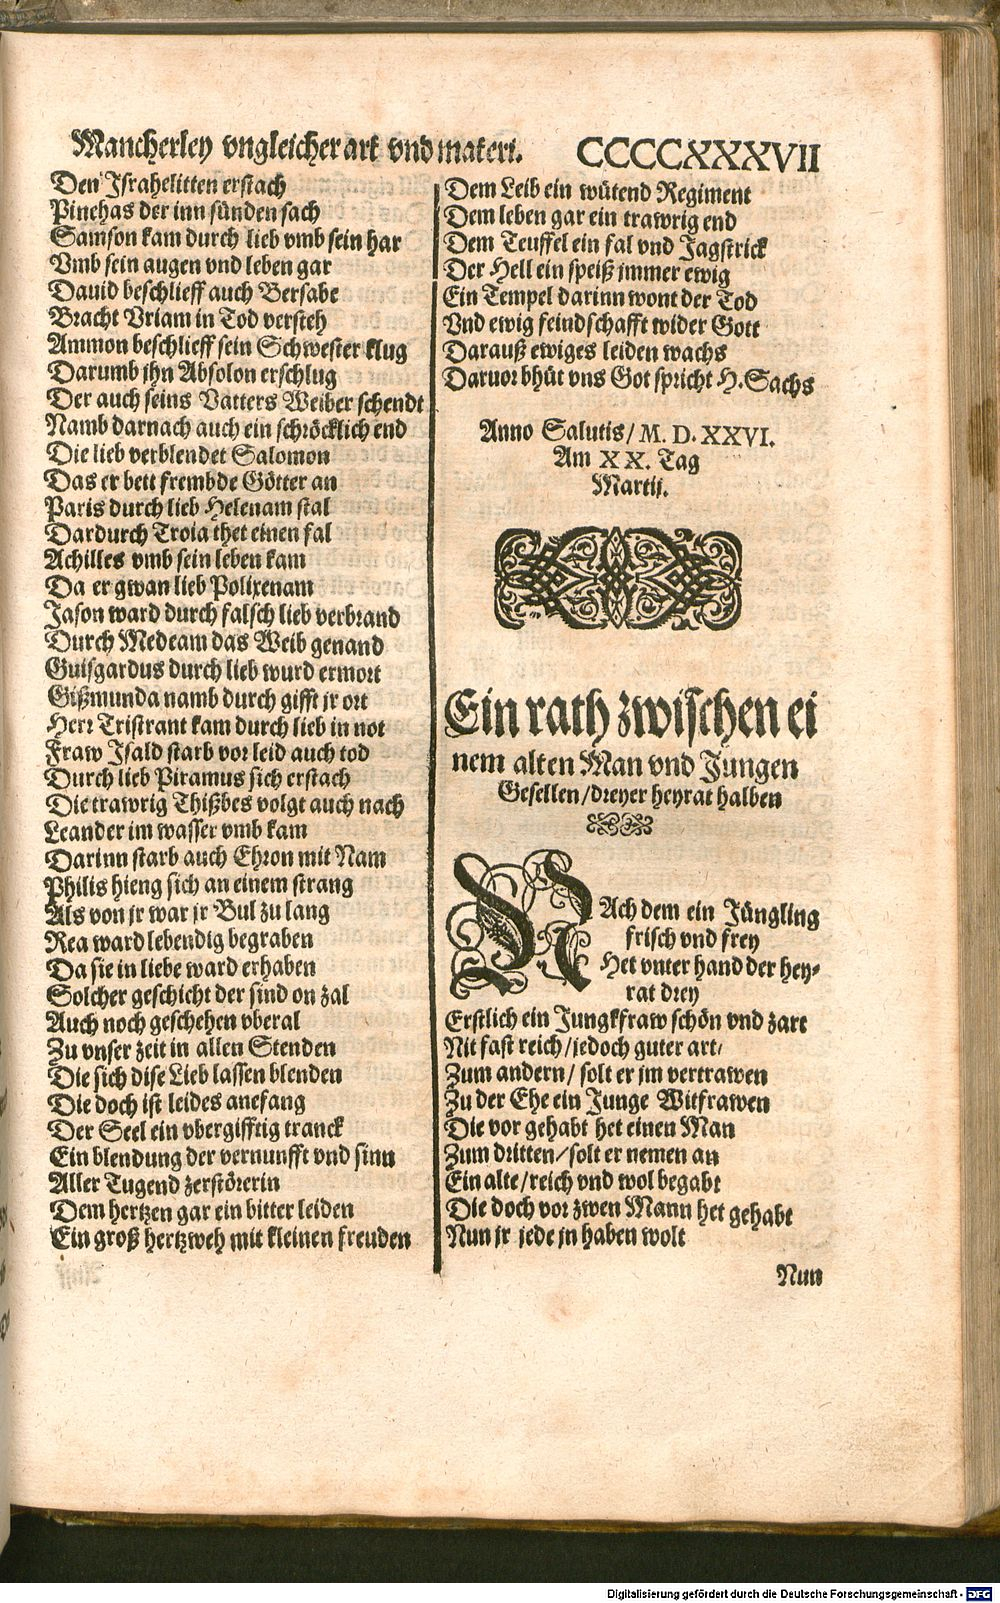 Mancherley vngleicher art vnd materi. CCCCXXXVII
Den Israhelitten erstach
Pinehas der inn sünden sach
Samson kam durch lieb vmb sein har
Vmb sein augen vnd leben gar
Dauid beschlieff auch Bersabe
Bracht Vriam in Tod versteh
Ammon beschlieff sein Schwester klug
Darumb jhn Absolon erschlug
Der auch seins Vatters Weiber schendt
Namb darnach auch ein schröcklich end
Die lieb verblendet Salomon
Das er bett frembde Götter an
Paris durch lieb Helenam stal
Dardurch Troia thet einen fal
Achilles vmb sein leben kam
Da er gwan lieb Polixenam
Jason ward durch falsch lieb verbrand
Durch Medeam das Weib genand
Guisgardus durch lieb wurd ermort
Gißmunda namb durch gifft jr ort
Herr Tristrant kam durch lieb in not
Fraw Isald starb vor leid auch tod
Durch lieb Piramus sich erstach
Die trawrig Thißbes volgt auch nach
Leander im wasser vmb kam
Darinn starb auch Ehron mit Nam
Philis hieng sich an einem strang
Als von jr war jr Bul zu lang
Rea ward lebendig begraben
Da sie in liebe ward erhaben
Solcher geschicht der sind on zal
Auch noch geschehen vberal
Zu vnser zeit in allen Stenden
Die sich dise Lieb lassen blenden
Die doch ist leides anefang
Der Seel ein vbergifftig tranck
Ein blendung der vernunfft vnd sinn
Aller Tugend zerstörerin
Dem hertzen gar ein bitter leiden
Ein groß hertzweh mit kleinen freuden
Dem Leib ein wütend Regiment
Dem leben gar ein trawrig end
Dem Teuffel ein fal vnd Jagstrick
Der Hell ein speiß jmmer ewig
Ein Tempel darinn wont der Tod
Vnd ewig feindschafft wider Gott
Darauß ewiges leiden wachs
Daruor bhüt vns Got spricht H. Sachs
Anno Salutis / M. D. XXVI.
Am XX. Tag
Martij.
Ein rath zwischen ei
nem alten Man vnd Jungen
Gesellen / dreyer heyrat halben
NAch dem ein Jüngling
frisch vnd frey
Het vnter hand der hey-
rat drey
Erstlich ein Jungkfraw schön vnd zart
Nit fast reich / jedoch guter art /
Zum andern / solt er jm vertrawen
Zu der Ehe ein Junge Witfrawen
Die vor gehabt het einen Man
Zum dritten / solt er nemen an
Ein alte / reich vnd wol begabt
Die doch vor zwen Mann het gehabt
Nun jr jede jn haben wolt
Nun
Digitalisierung gefördert durch die Deutsche Forschungsgemeinschaft - DFG